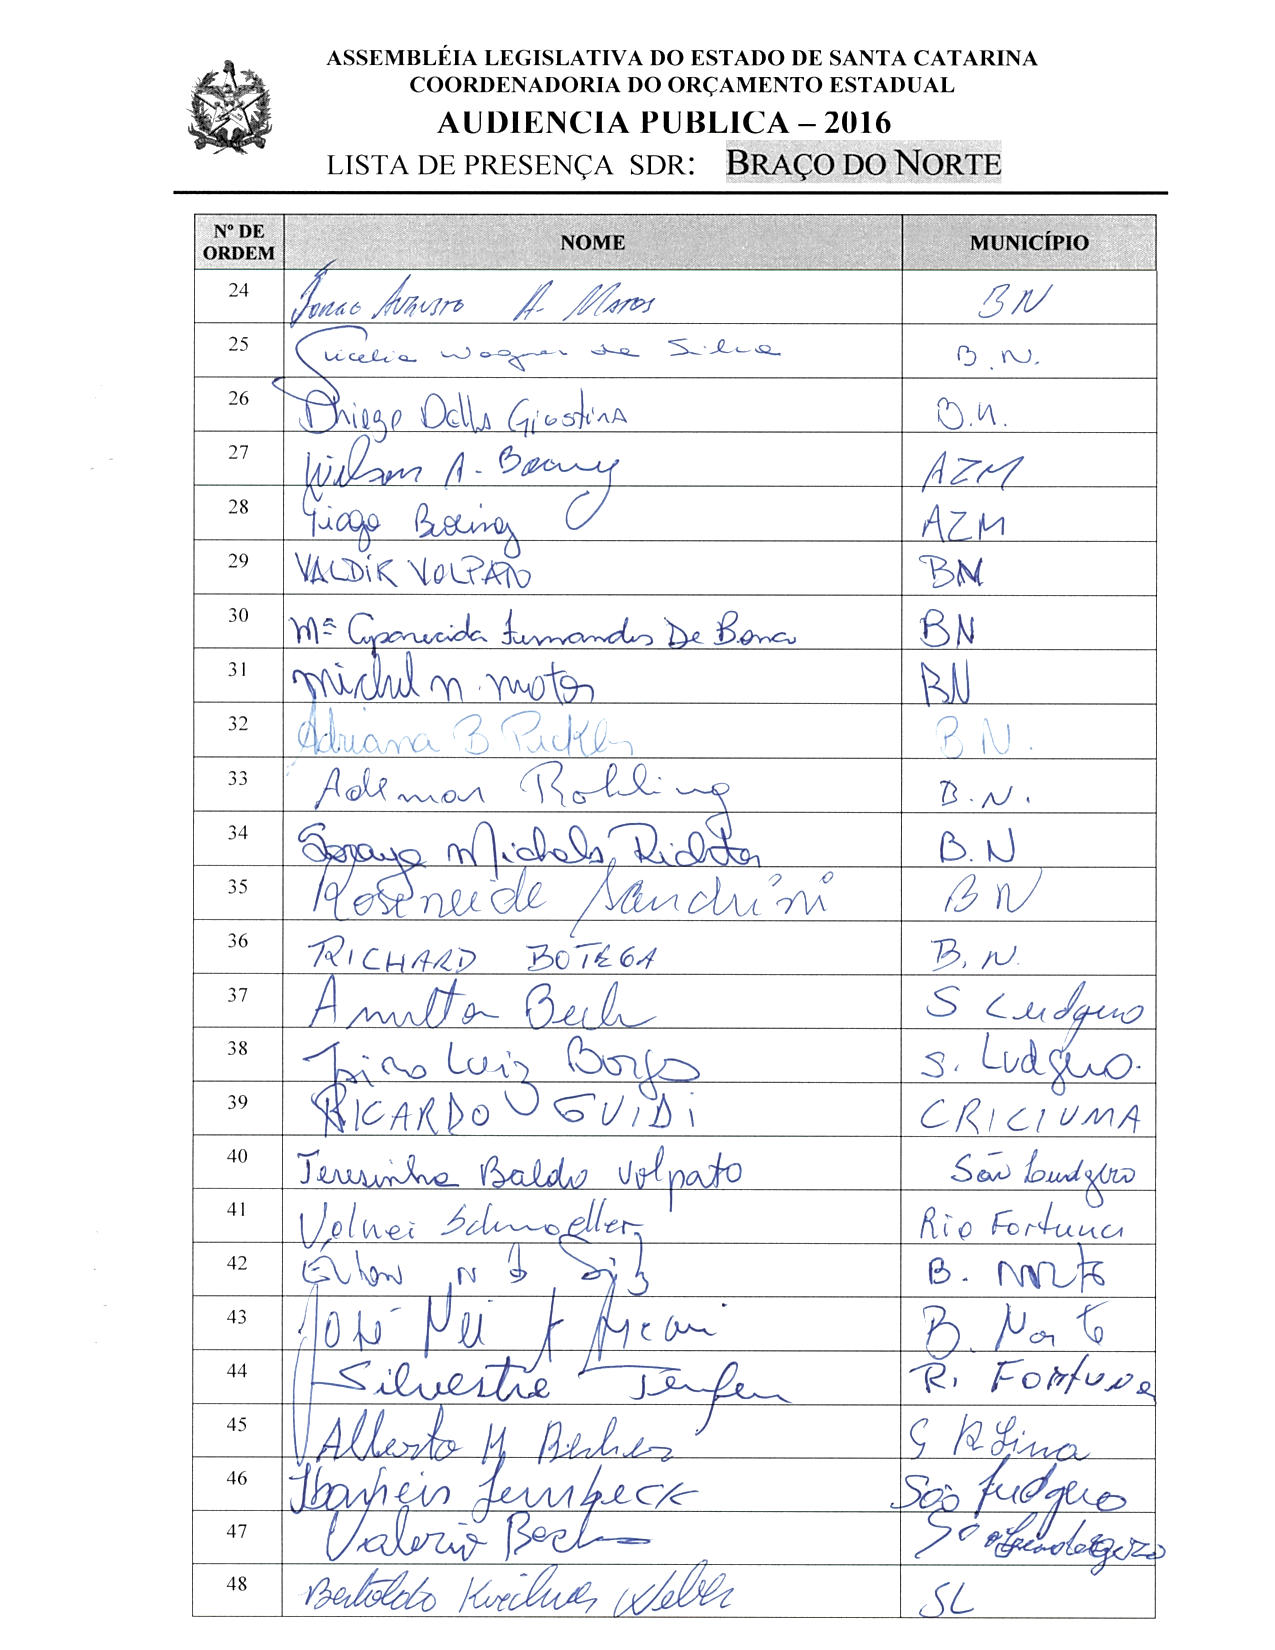 ASSEMBLÉIA LEGISLATIVA DO ESTADO DE SANTA CATARINA
COORDENADORIA DO ORÇAMENTO ESTADUAL
AUDIENCIA PUBLICA – 2016
LISTA DE PRESENÇA SDR: BRAÇO DO NORTE
Nº DE ORDEM NOME MUNICÍPIO
24 Augusto A. Matos BN
25 Wagner da Silva B.N.
26 Thiego Della Giustina B.N.
27 Wilson A. AZM
28 Tiago Boeing AZM
29 VALDIR VOLPATO BN
30 Mª Aparecida Fernandes De Bona BN
31 Michel N. Matos BN
32 Adriana B BN.
33 Ademar Rohling B.N.
34 Soraya Michels Richter B.N
35 Roseneide Sandrini BN
36 RICHARD BOTEGA B.N.
37 Amilton Bech S Ludgero
38 Luiz Borges S. Ludgero.
39 RICARDO GUIDI CRICIUMA
40 Teresinha Baldo Volpato São Ludgero
41 Volnei Schmoeller Rio Fortuna
42 B. Norte
43 José Nei B. Norte
44 Silvestre R. Fortuna
45 Alberto
46 São Ludgero
47 Valerio
48 Bertoldo Weber SL